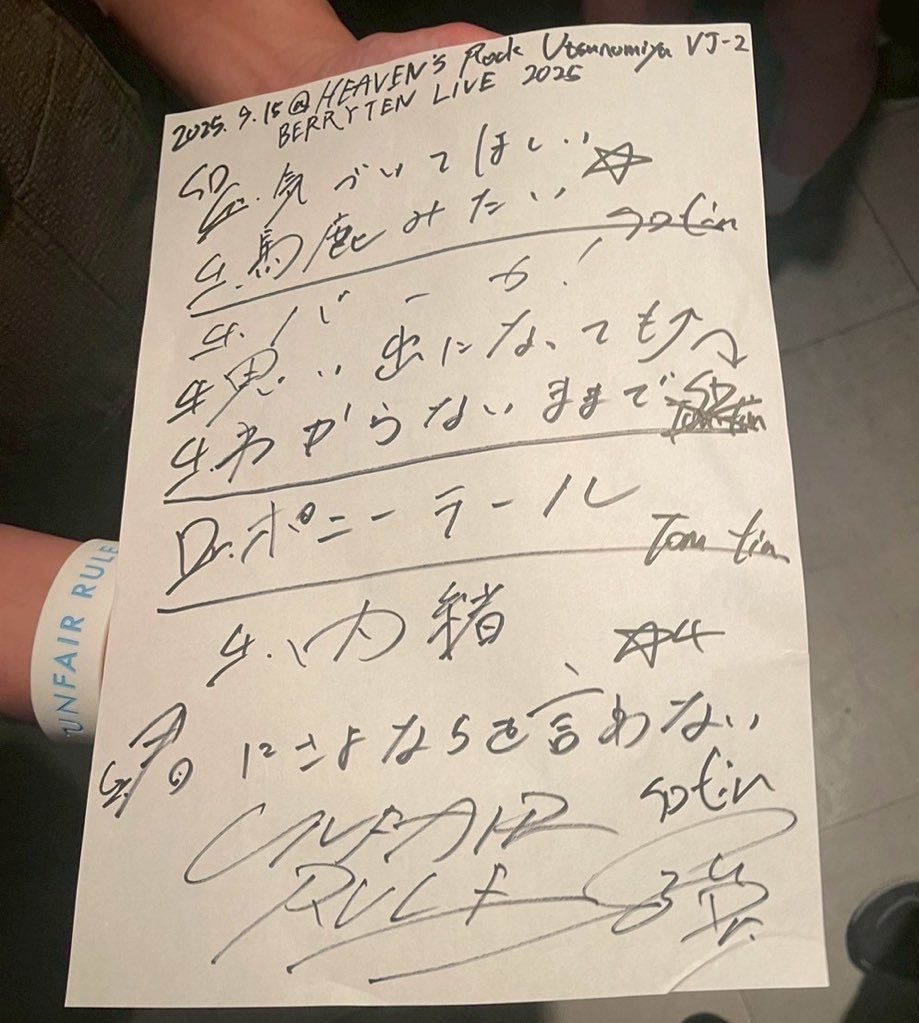 2025.9.15@HEAVEN's Rock Utsunomiya VJ-2
BERRYTEN LIVE 2025
SD
生.気づいてほしい ☆
生.馬鹿みたい SD tin
生.バーカ!
生.思い出になっても↑
生.わからないままで SD
Dr.ポニーテール Tom tin
生.内緒 ☆生
生.君にさよならを言わない
SD tin
UNFAIR
RULE
Dr.
UNFAIR RULE